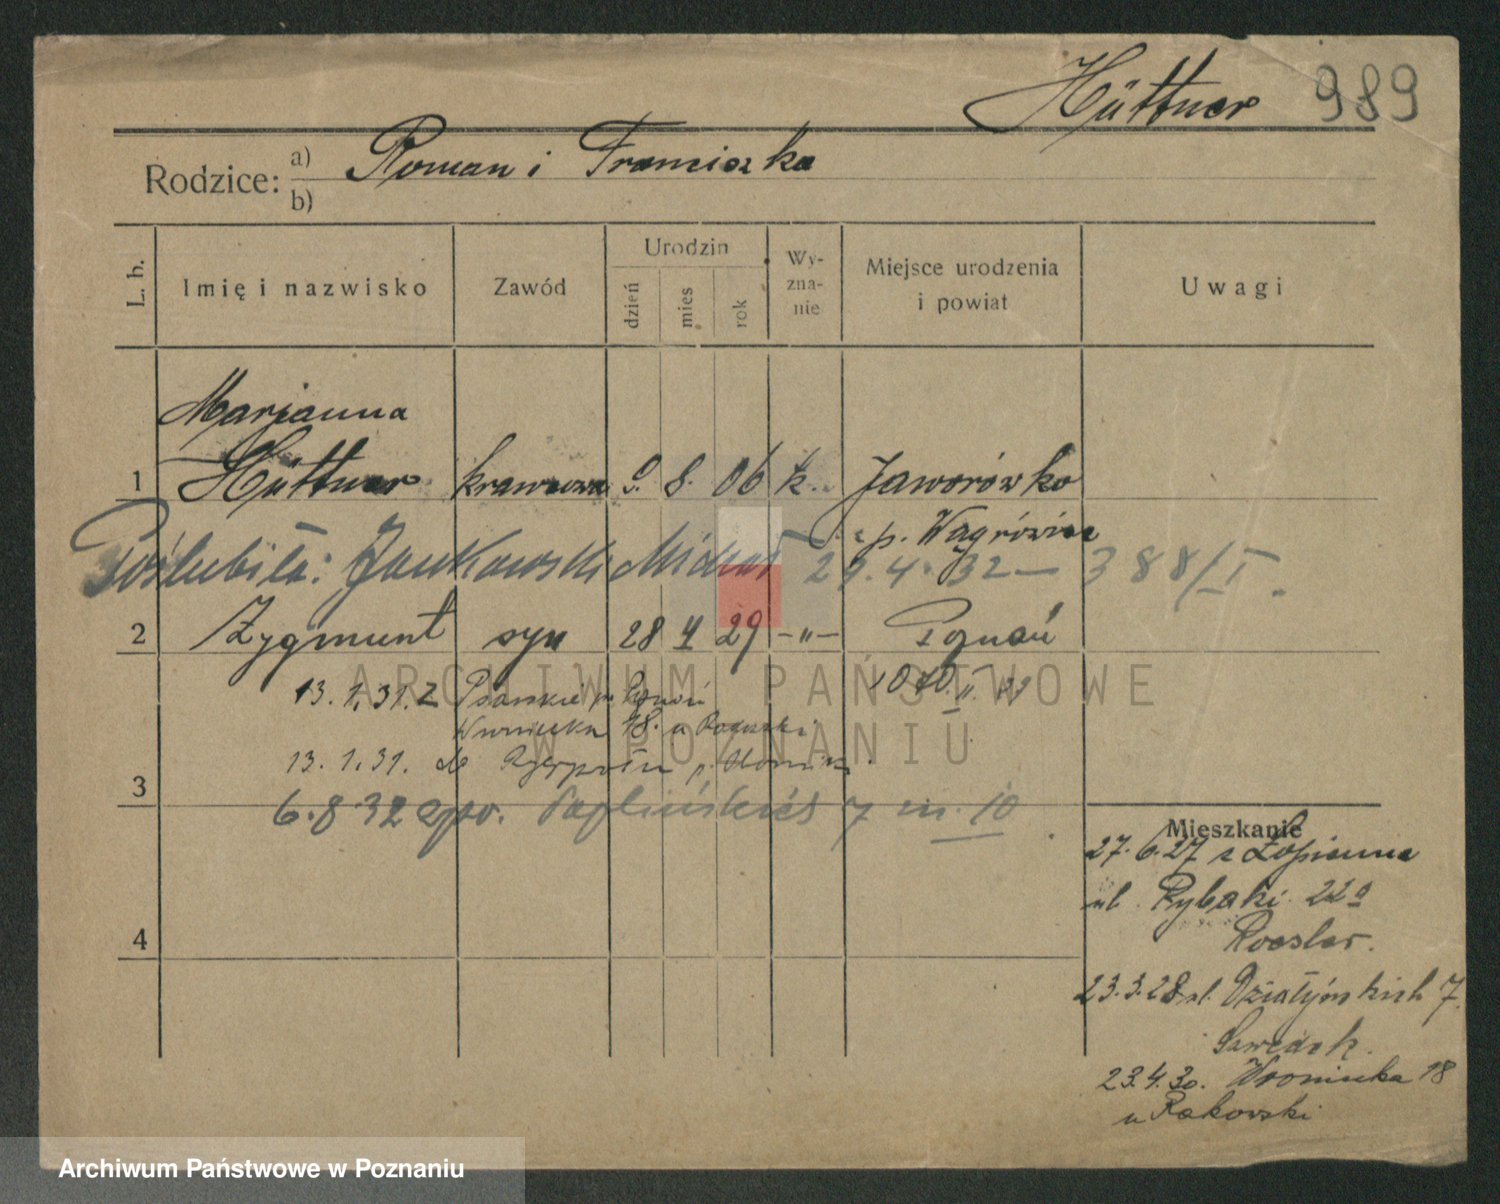 Hüttner 989
Rodzice: a) Roman i Franciszka
b)
L. b. Imię i nazwisko Zawód Urodzin dzień mies rok Wy-zna-nie Miejsce urodzenia i powiat Uwagi
Marjanna
1 Hüttner krawcowa 9. 8. 06 k. Jaworówko
p. Wągrówiec
Poślubiła: Jankowski Michał 29.4.32 – 388/I.
2 Zygmunt syn 28 4 29 –"– Poznań
13.1.31. z Psarskie p. Poznań
Wroniecka 18. u
13.1.31. do p.
3
6.8.32 7 m. 10
Mieszkanie
27.6.27 z Łopienna
ul. Rybaki 22a
Roesler.
4
23.3.28 ul. Działyńskich 7.
23.4.30. Wroniecka 18
u Rakowski
ARCHIWUM PAŃSTWOWE
W POZNANIU
Archiwum Państwowe w Poznaniu